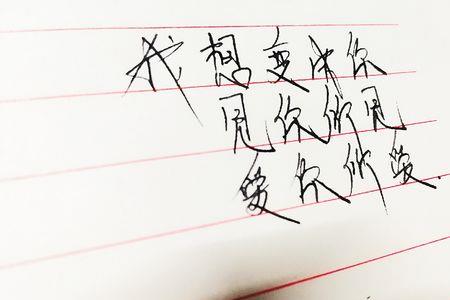 我想变成你
见你所见
爱你所爱.